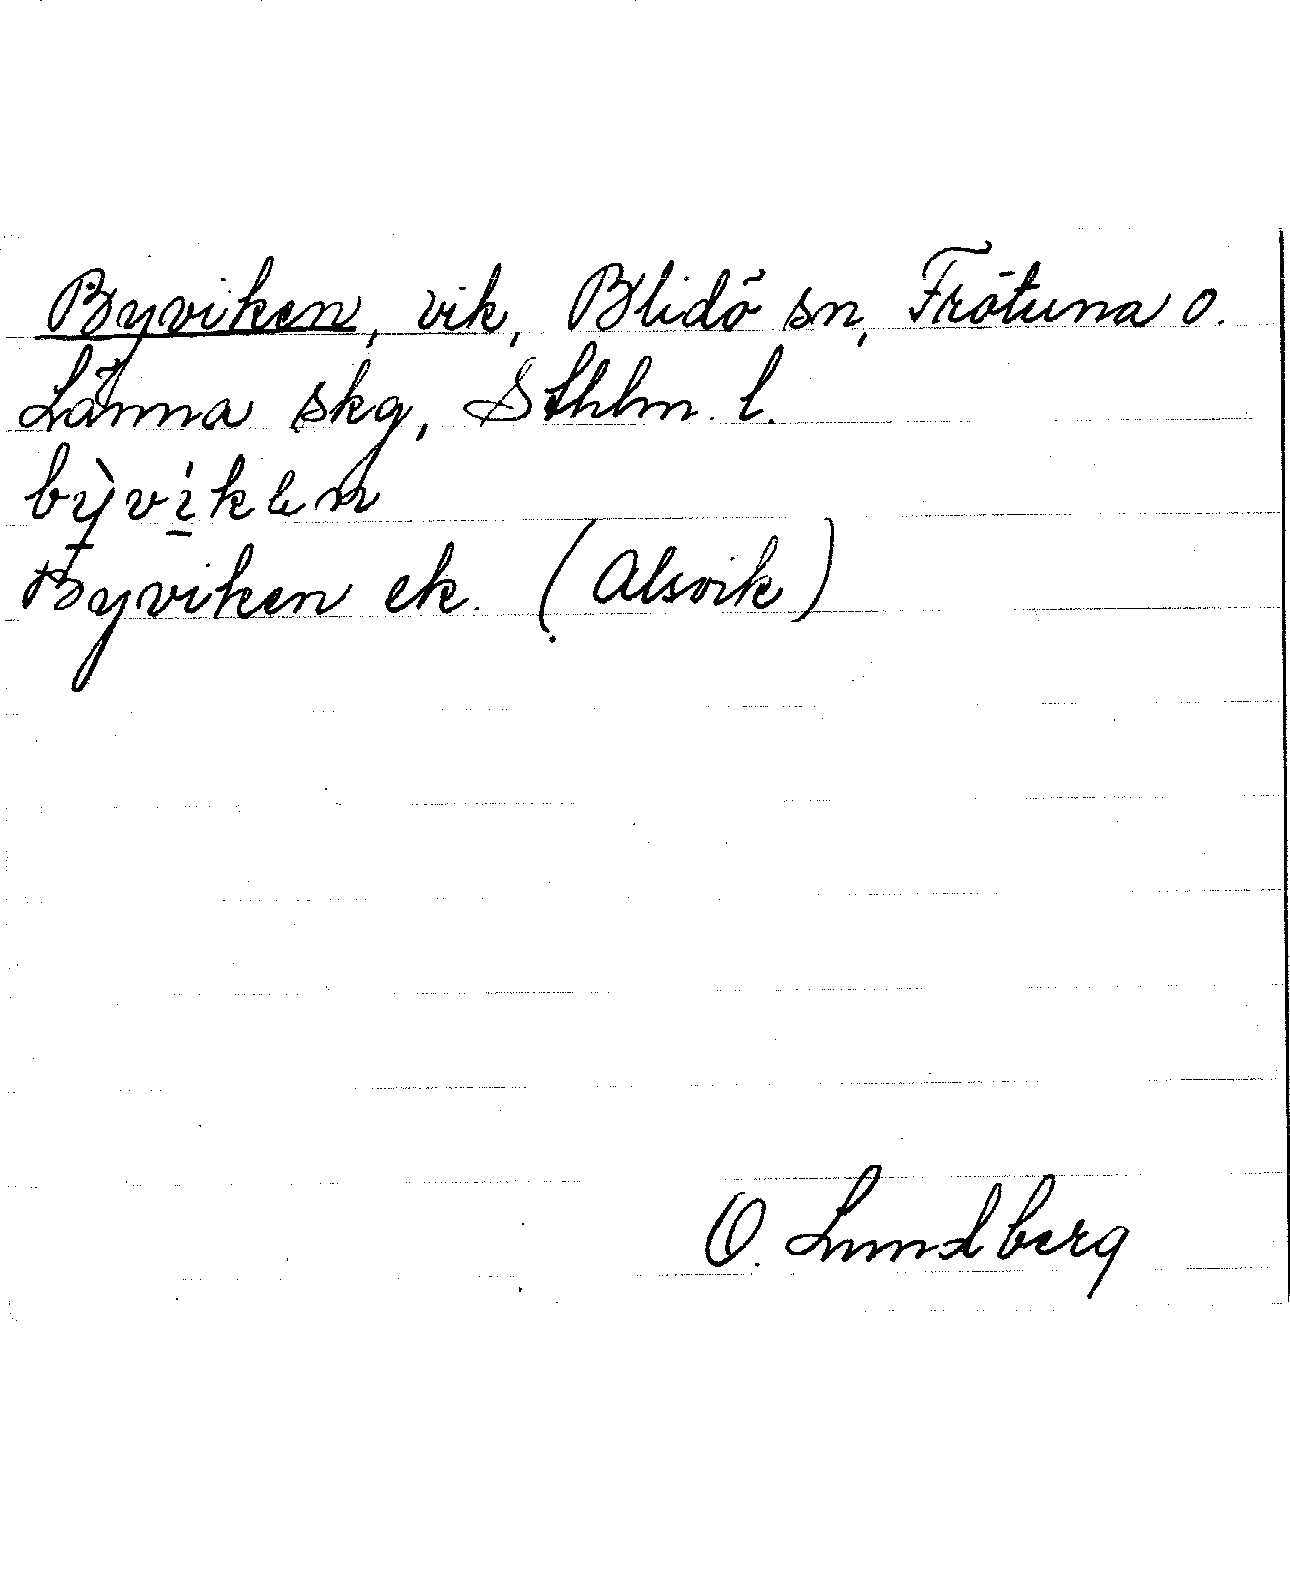 Byviken, vik, Blidö sn, Frötuna o.
Länna skg, Sthlm. l.
Byviken ek. (Alsvik)
O. Lundberg